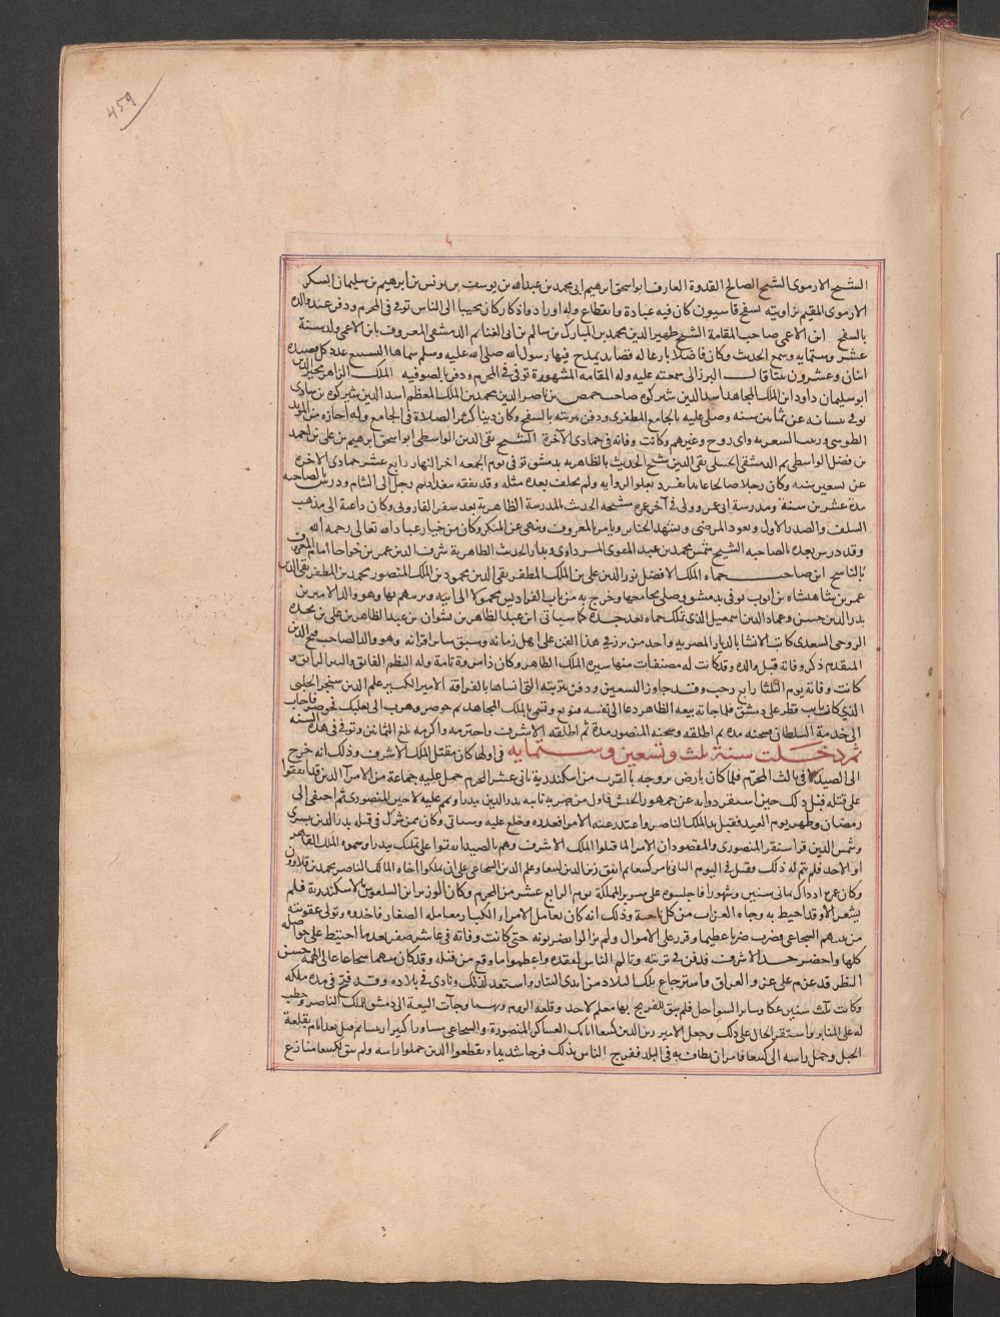 459
الشيخ الارموى الشيخ الصالح القدوة العارف ابو اسحق ابرهيم ابى محمد بن عبدالله بن يوسف بن يونس بن ابرهيم بن سليمان
الارموى المقيم بزاويته بسفح قاسيون كان فيه عبادة وانقطاع وله اوراد واذكار كان محببا الى الناس توفى فى المحرم ودفن عند والده
بالسفح ابن الاعمى صاحب المقامة الشيخ ظهير الدين محمد بن المبارك بن سالم بن ابى الغنايم الدمشقى المعروف بابن الاعمى ولد سنة
عشر وستمايه وسمع الحديث وكان فاضلا بارعا له قصايد يمدح فيها رسول الله صلى الله عليه وسلم سماها الشفعيه عدد كل قصيدة
اثنان وعشرون بيتا قال البرزالى سمعته عليه وله المقامه المشهورة توفى فى المحرم ودفن بالصوفيه الملك الزاهر مجير الدين
ابو سليمان داود ابن الملك المجاهد اسد الدين شيركوه صاحب حمص بن ناصر الدين محمد بن الملك المعظم اسد الدين شيركوه بن شادى
توفى ببستانه عن ثمانين سنه وصلى عليه بالجامع المظفرى ودفن بتربته بالسفح وكان دينا كثير الصلاة فى الجامع وله اجازه من المويد
الطوسى وزينب الشعريه وابى روح وغيرهم وكانت وفاته فى جمادى الآخرة الشيخ تقى الدين الواسطى ابو اسحق ابرهيم بن على بن احمد
بن فضل الواسطى ثم الدمشقى الحنبلى تقى الدين شيخ الحديث بالظاهريه بدمشق توفى يوم الجمعه اخر النهار رابع عشر جمادى الاخره
عن تسعين سنه وكان رجلا صالحا عابدا تفرد بعلو الروايه ولم يخلف بعده مثله وقد تفقه ببغداد ثم رحل الى الشام ودرس بالصاحبه
مدة عشرين سنة وبمدرسة ابى عمر وولى فى آخر عمره مشيخه الحديث بالمدرسة الظاهرية بعد سفر الفاروثى وكان داعية الى مذهب
السلف والصدر الاول ويعود المرضى ويشهد الجنايز ويامر بالمعروف وينهى عن المنكر وكان من خيار عباد الله تعالى رحمه الله
وقد درس بعده بالصاحبه الشيخ شمس محمد بن عبد القوى المرداوى وبدار الحديث الظاهرية شرف الدين عمر بن خواجا امام المعروف
بالناسح ابن صاحب حماه الملك الافضل نور الدين على بن الملك المظفر تقى الدين محمود بن الملك المنصور محمد بن المظفر تقى الدين
عمر بن شاهنشاه بن ايوب توفى بدمشق وصلى بجامعها وخرج به من باب الفراديس محمولا الى ابيه وتربتهم بها وهو والد الاميرين
بدر الدين حسن وعماد الدين اسمعيل الذى تملك حماه بعد جده كما سياتى ابن عبد الظاهر بن نشوان بن عبد الظاهر بن على بن نجده
الروحى السعدى كاتب الانشا بالديار المصريه واحد من برز فى هذا الفن على اهل زمانه وسبق ساير اقرانه وهو والد الصاحب فتح الدين
المتقدم ذكر وفاته قبل والده وقد كانت له مصنفات منها سيرة الملك الظاهر وكان ذا مروة تامة وله النظم الفايق والنثر الرايق و
كانت وفاته يوم الثلثا رابع رجب وقد جاوز السبعين ودفن بتربته التى انشاها بالقرافة الامير الكبير علم الدين سنجر الحلبى
الذى كان نايب قطز على دمشق فلما جاته بيعه الظاهر دعا الى نفسه وبويع وتسمى بالملك المجاهد ثم حوصر وهرب الى بعلبك فحوصر فاجاب
الى خدمة السلطان فسجنه مدة ثم اطلقه وسجنه المنصور مدة ثم اطلقه الاشرف واحترمه واكرمه بلغ الثمانين وتوفى فى هذه السنه
ثم دخلت سنة ثلث وتسعين وستمايه فى اولها كان مقتل الملك الاشرف وذلك انه خرج
الى الصيد فى ثالث المحرم فلما كان بارض تروجه بالقرب من اسكندرية ثانى عشر المحرم حمل عليه جماعة من الامرآ الذين قد اتفقوا
على قتله قبل ذلك حين استفرد وانه عن جمهور الجيش فاول من ضربه نايبه بدر الدين بيدرا وتمم عليه لاجين المنصورى ثم اختفى الى
رمضان وظهر يوم العيد فقبل يد الملك الناصر واعتذر عنه الامرا فعذره وخلع عليه وسياتى وكان ممن شرك فى قتله بدر الدين بيسرى
وشمس الدين قراسنقر المنصورى والمقصود ان الامرا لما قتلوا الملك الاشرف وهم بالصيد اتفقوا على تملك بيدرا وسموه الملك القاهر
او الاوحد فلم يتم له ذلك فقتل فى اليوم الثانى بامر كتبغا ثم اتفق زين الدين كتبغا وعلم الدين الشجاعى على ان ملكوا اخاه المالك الناصر محمد بن قلاوون
وكان عمره اذ ذاك ثمانى سنين وشهورا فاجلسوه على سرير المملكة يوم الرابع عشر من المحرم وكان الوزير ابن السلعوس بالاسكندرية فلم
يشعر الا وقد احيط به وجاه العذاب من كل ناحية وذلك انه كان يعامل الامراء الكبار معامله الصغار فاخذه وتولى عقوبته
من بينهم الشجاعى فضرب ضربا عظيما وقرر على الاموال ولم يزالوا يضربونه حتى كانت وفاته فى عاشر صفر بعد ما احتيط على حواصله
كلها واحضر جسد الاشرف فدفن فى تربته وتالم الناس لفقده واعظموا ما وقع من قتله وقد كان شهما شجاعا عالى الهمة حسن
النظر قد عزم على غزو العراق واسترجاع تلك البلاد من ايدى التتار واستعد لذلك ونادى فى بلاده وقد فتح فى مدة ملكه
وكانت ثلث سنين عكا وساير السواحل فلم يبق للفرنج بها معلم لاحد وقلعة الروم وبهسنا وجآت البيعة الى دمشق للملك الناصر وخطب
له على المنابر واستقر الحال على ذلك وجعل الامير زين الدين كتبغا اتابك العساكر المنصورة والشجاعى مشاورا كبيرا ثم قتل بعد ايام بقلعة
الجبل وحمل راسه الى كتبغا فامر ان يطاف به فى البلد ففرح الناس بذلك فرحا شديدا واعطوا الذين حملوا راسه ولم يبق لكتبغا منازع